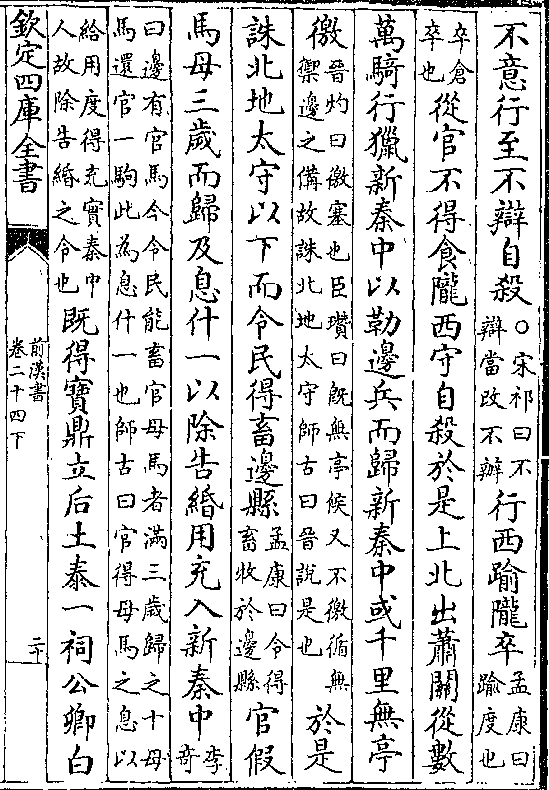 不意行至不辯自殺○宋祁曰不辯當改不辦行西踰隴卒孟康曰踰度也
卒倉卒也從官不得食隴西守自殺於是上北出蕭關從數
萬騎行獵新秦中以勒邊兵而歸新秦中或千里無亭
徼晉灼曰徼塞也臣瓚曰既無亭候又不徼循無禦邊之備故誅北地太守師古曰晉說是也於是
誅北地太守以下而令民得畜邊縣孟康曰令得畜牧於邊縣官假
馬母三歲而歸及息什一以除告緡用充入新秦中李奇
曰邊有官馬今令民能畜官母馬者滿三歲歸之十母馬還官一駒此為息什一也師古曰官得母馬之息以
給用度得充實秦中人故除告緡之令也既得寶鼎立后土泰一祠公卿白
欽定四庫全書
前漢書
卷二十四下
二十